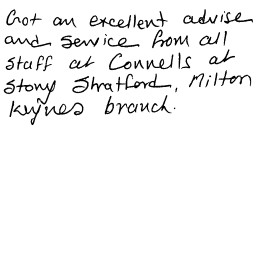 Got an excellent advise
and service from all
staff at Connells at
Stony Stratford, Milton
Keynes branch.